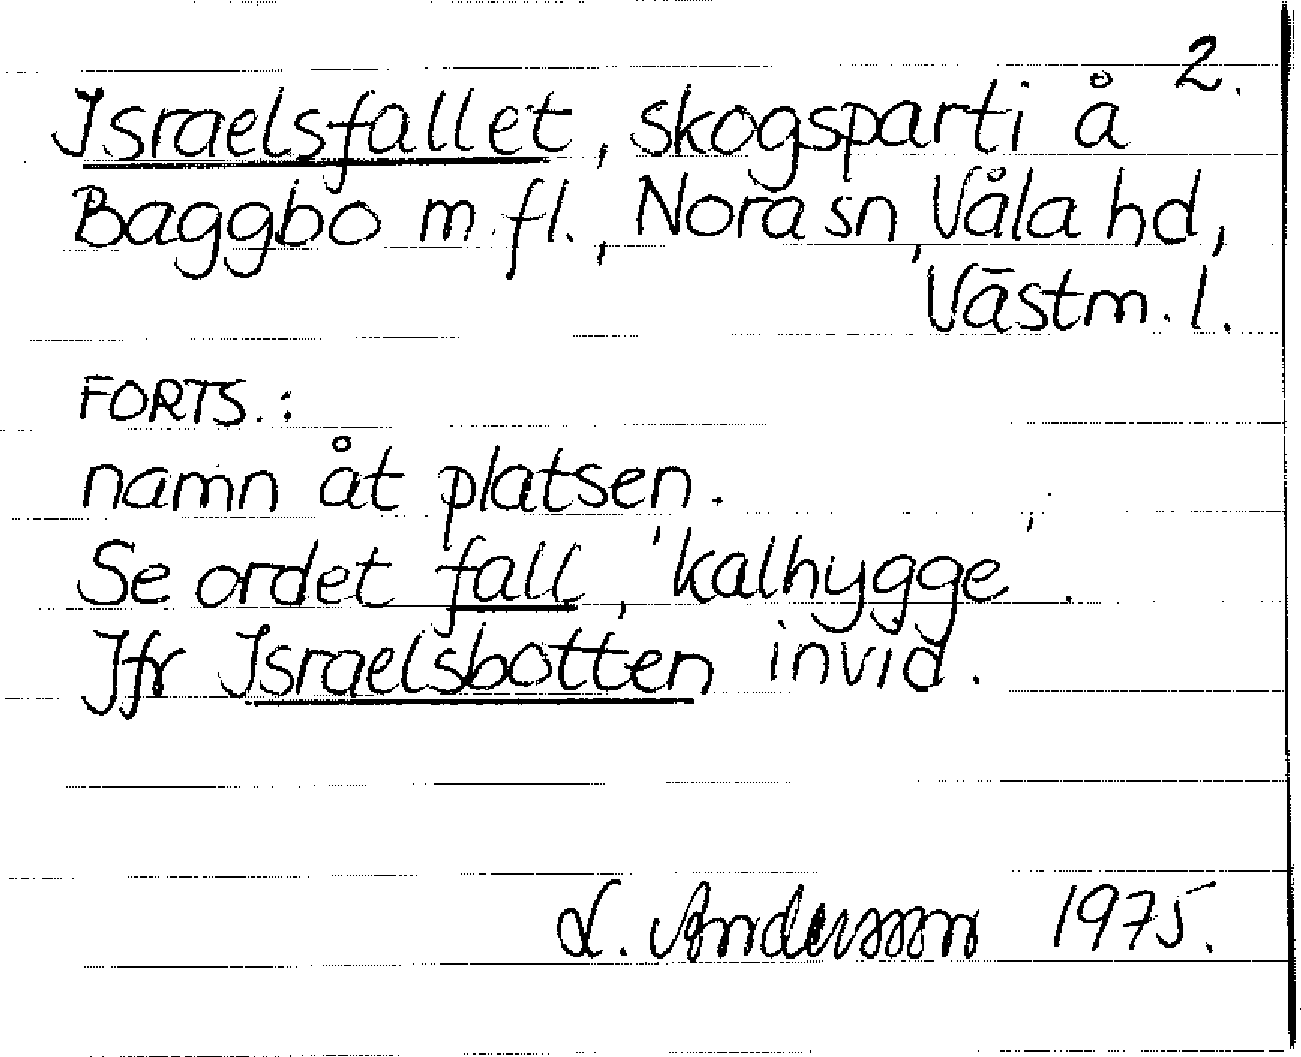 2.
Israelsfallet, skogsparti å
Baggbo m fl., Nora sn, Våla hd,
Västm. l.
FORTS.:
namn åt platsen.
Se ordet fall, 'kalhygge'.
Jfr Israelsbotten invid.
L. Andersson 1975.